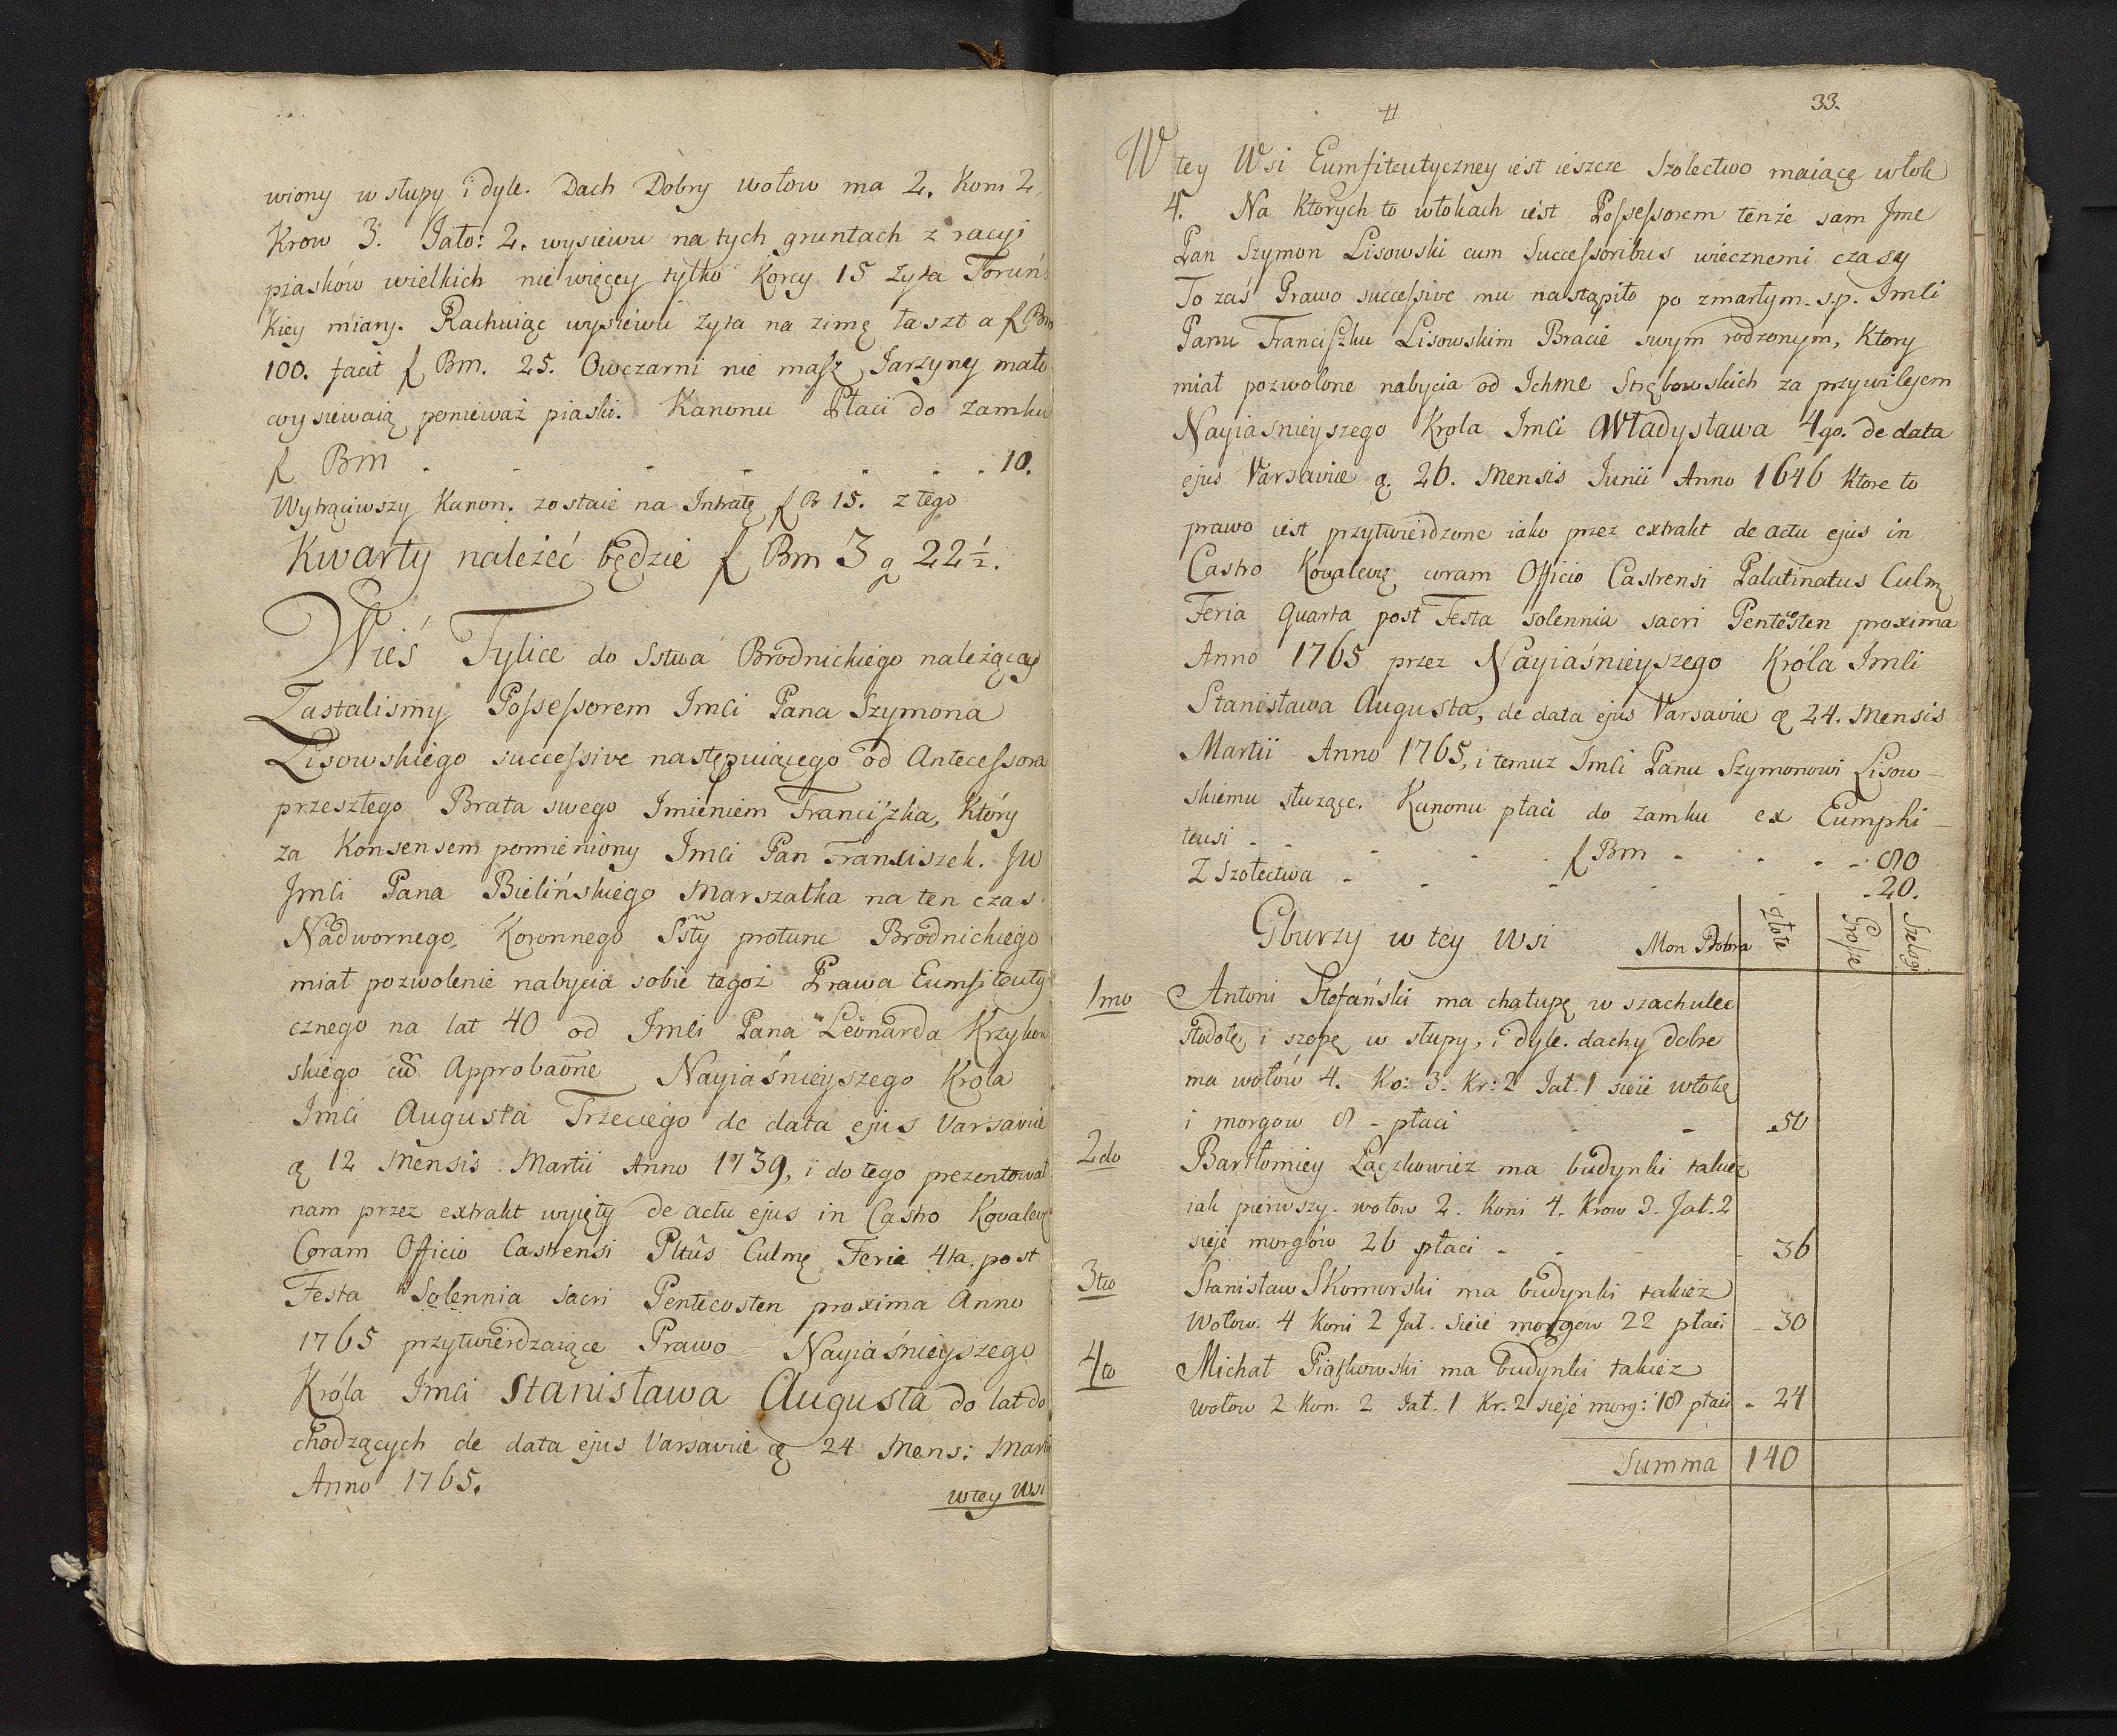 wiony w słupy i dyle. Dach Dobry wołow ma 2. Koni 2,
Krow 3. Jało: 2. wysiewu na tych gruntach z racyi
piasków wielkich nie więcey tylko Korcy 15 żyta Toruńs
Kiey miary. Rachuiąc wysiewu żyta na zimę łaszt a f Bm
100. facit f Bm. 25. Owczarni nie masz, Jarzyney mało
wysiewaią ponieważ piaski. Kanonu Płaci do zamku
f Bm . . . . . . . 10.
Wytrąciwszy Kanon. zostaie na Intratę f B 15. z tego
Kwarty należeć będzie f Bm 3 g 22½.
Wieś Tylice do Sstwa Brodnickiego należącą
Zastalismy Possessorem Imci Pana Szymona
Lisowskiego successive następuiącego od Antecessora
przeszłego Brata swego Imieniem Franciszka, Który
za Konsensem pomieniony Imci Pan Franciszek. JW
Imci Pana Bielińskiego Marszałka na ten czas
Nadwornego Koronnego Ssty protunc Brodnickiego
miał pozwolenie nabycia sobie tegoż Prawa Eumfiteuty
cznego na lat 40 od Imci Pana Leonarda Krzykow
skiego cū Approbaōne Nayiaśnieyszego Krola
Imci Augusta Trzeciego de data ejus Varsavie
ą 12 Mensis Martii Anno 1739, i do tego prezentował
nam przez extrakt wyięty de actu ejus in Castro Kovalevę
Coram Officio Castrensi Pltûs Culmę Feria 4ta. post
Festa Solennia sacri Pentecosten proxima Anno
1765 przytwierdzaiące Prawo Nayiaśnieyszego
Króla Imci Stanisława Augusta do lat do
chodzących de data ejus Varsavie ą 24 Mens: Martii
Anno 1765.
w tey Wsi
33.
W tey Wsi Eumfiteutyczney iest ieszcze Szolectwo maiącę włok
4. Na Ktorych to włokach iest Possessorem tenże sam Jme
Pan Szymon Lisowski cum Successoribus wiecznemi czasy
To zaś Prawo successive mu nastąpiło po zmarłym. s.p. Imci
Panu Franciszku Lisowskim Bracie swym rodzonym, Ktory
miał pozwolone nabycia od Ichme Strębowskich za przywileiem
Nayiaśnieyszego Krola Imci Władysława 4go. de data
ejus Varsavie ą. 26. Mensis Junii Anno 1646 Ktore to
prawo iest przytwierdzone iako przez extrakt de actu ejus in
Castro Kovalevę coram Officio Castrensi Palatinatus Culmę
Feria Quarta post Festa solennia sacri Pentecosten proxima
Anno 1765 przez Nayiaśnieyszego Króla Imci
Stanisława Augusta, de data ejus Varsavie ą 24. Mensis
Martii Anno 1765, i temuz Imci Panu Szymonowi Lisow-
skiemu służące. Kanonu płaci do zamku ex Eumphi-
teusi . . . . f Bm . . . . 80
Z Szołectwa . . . . . . 20.
Gburzy w tey Wsi Mon Dobra złote Grosze Szelągi
1mo Antoni Stefański ma chałupę w szachulec
stodołę i szopę w słupy, i dyle. dachy dobre
ma wołów 4. Ko: 3. Kr: 2 Jał. 1 sieie włokę
i morgow 8 - płaci - 50
2do Bartłomiey Łączkowicz ma budynki takież
iak pierwszy. wołow 2. Koni 4. Krow 3. Jał. 2
sieje morgów 26 płaci - 36
3tio Stanisław Skomorski ma budynki takież
Wołow. 4 Koni 2 Jał. Sieie morgow 22 płaci - 30
4to Michał Piąskowski ma budynki takież
wołow 2 Kon. 2 Jał. 1 Kr. 2 sieje morg: 18 płaci - 24
Summa 140